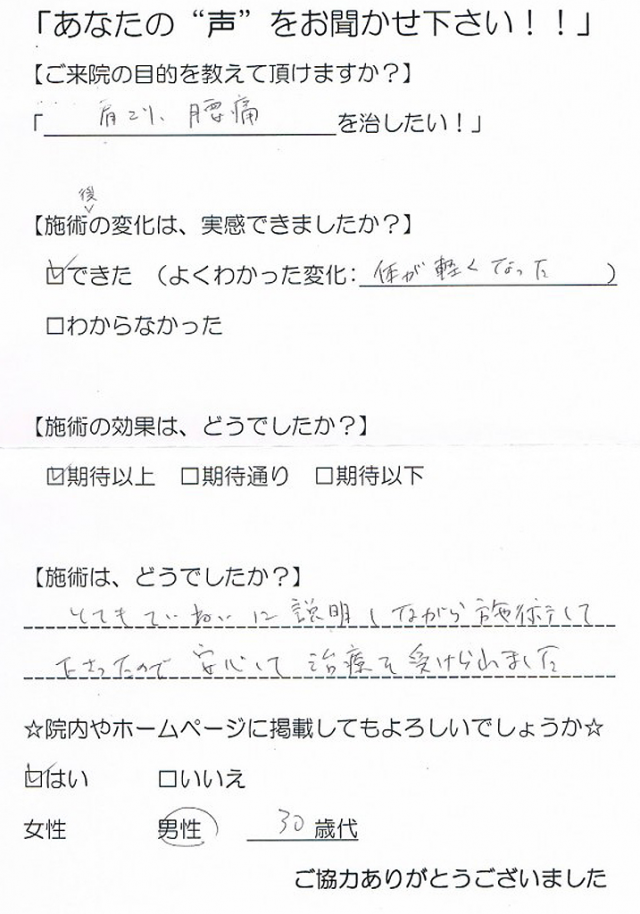 「あなたの“声”をお聞かせ下さい！！」
【ご来院の目的を教えて頂けますか？】
「肩こり、腰痛を治したい！」
後
【施術の変化は、実感できましたか？】
☑できた （よくわかった変化：体が軽くなった）
□わからなかった
【施術の効果は、どうでしたか？】
☑期待以上 □期待通り □期待以下
【施術は、どうでしたか？】
とてもていねいに説明しながら施術して
下さったので安心して治療を受けられました
☆院内やホームページに掲載してもよろしいでしょうか☆
☑はい □いいえ
女性 男性 30歳代
ご協力ありがとうございました